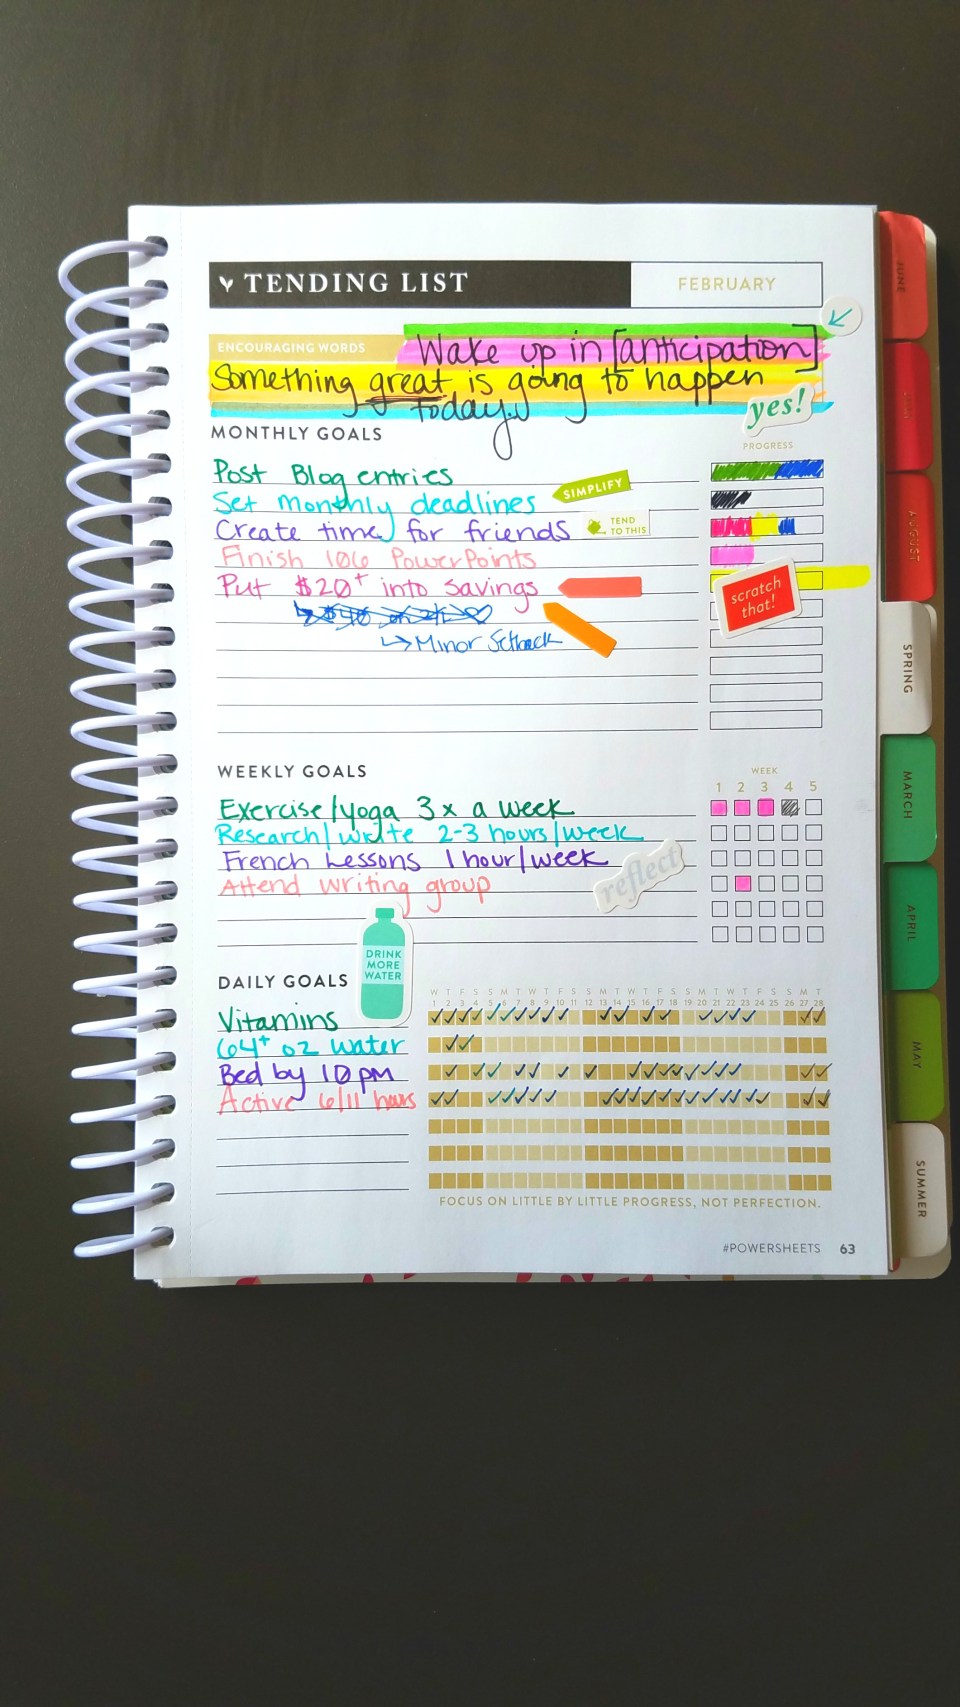 TENDING LIST
FEBRUARY
ENCOURAGING WORDS
Wake up in [anticipation]
Something great is going to happen
today.
yes!
MONTHLY GOALS
PROGRESS
Post Blog entries
Set monthly deadlines
SIMPLIFY
Create time for friends
TEND
TO THIS
Finish 106 PowerPoints
Put $20+ into savings
scratch
that!
↳ Minor Setback
WEEKLY GOALS
WEEK
1 2 3 4 5
Exercise/yoga 3x a week
Research/write 2-3 hours/week
French Lessons 1 hour/week
reflect
Attend writing group
DRINK
MORE
WATER
DAILY GOALS
W T F S S M T W T F S S M T W T F S S M T W T F S S M T
1 2 3 4 5 6 7 8 9 10 11 12 13 14 15 16 17 18 19 20 21 22 23 24 25 26 27 28
Vitamins
64+ oz water
Bed by 10pm
Active 6/11 hours
FOCUS ON LITTLE BY LITTLE PROGRESS, NOT PERFECTION.
#POWERSHEETS 63
JUNE
AUGUST
SPRING
MARCH
APRIL
MAY
SUMMER